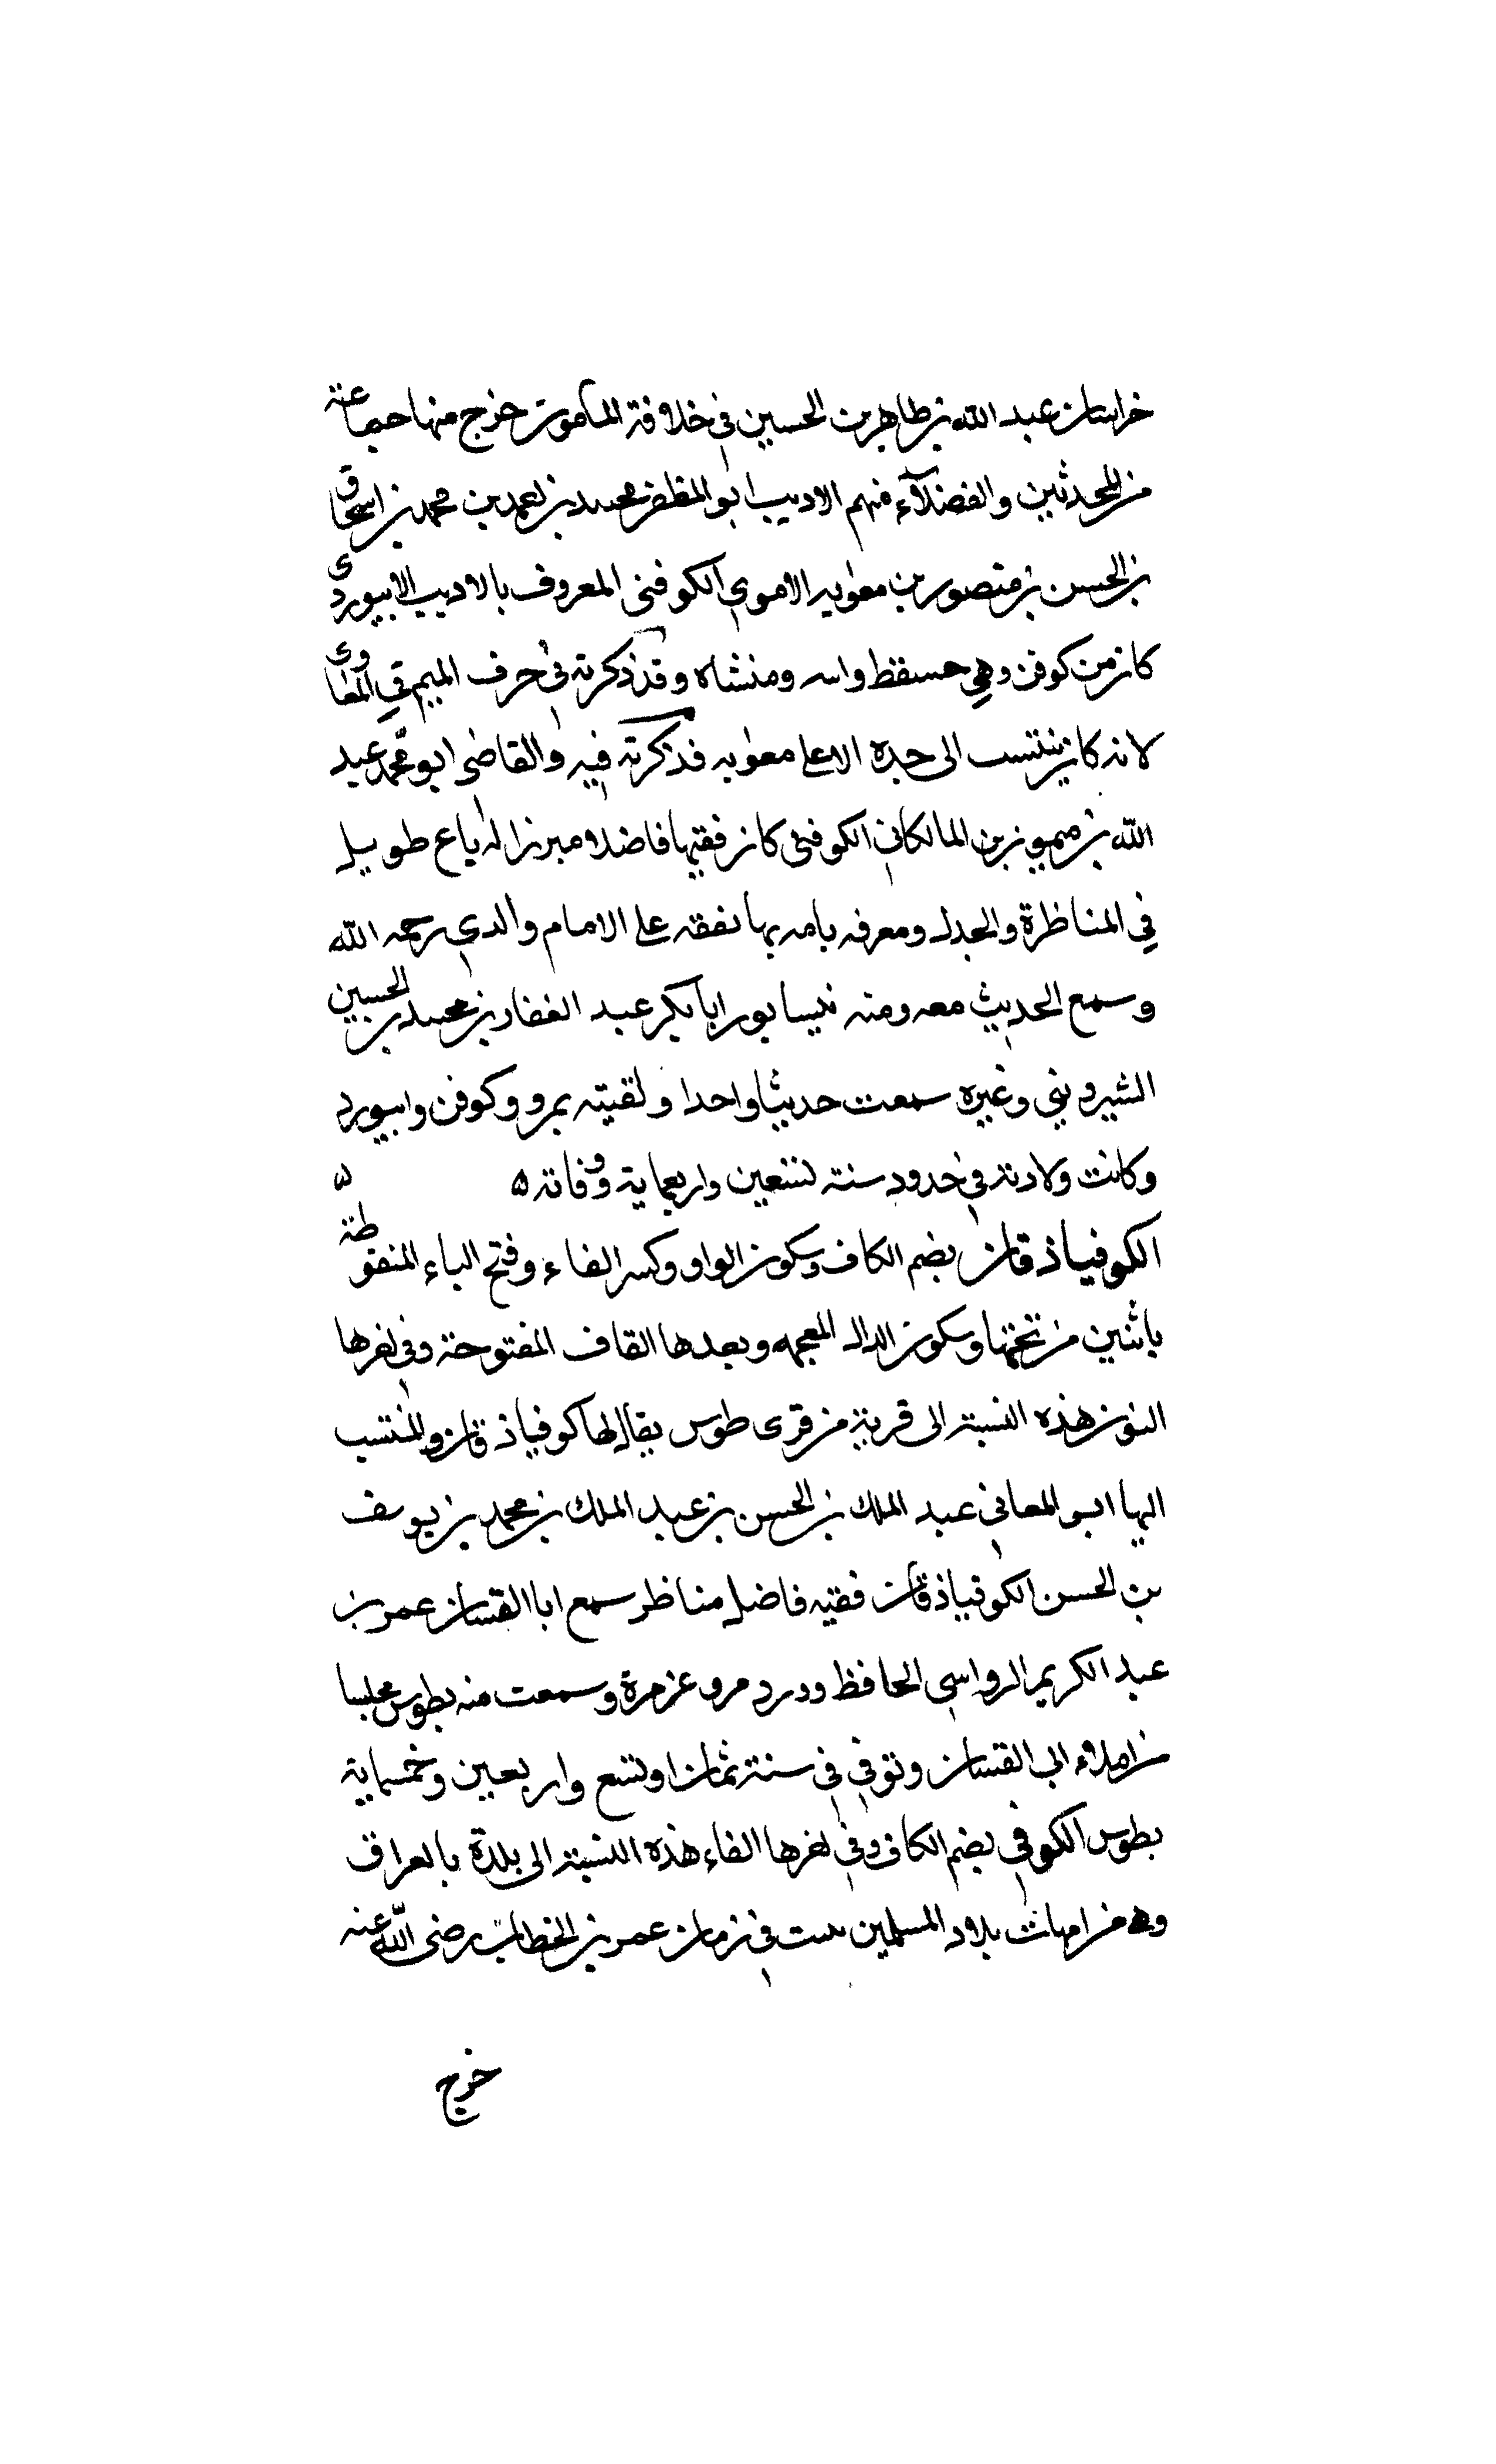 خراسان عبد الله بن طاهر بن الحسين في خلافة المأمون خرج منها جماعة
من المحدثين والفضلاء منهم الاديب ابو المظفر محمد بن احمد بن محمد بن اسحاق
بن الحسن بن منصور بن معوية الاموي الكوفني المعروف بالاديب الابيوردي
كان من كوفن وهي مسقط راسه ومنشاه وقد ذكرته في حرف الميم في المعاوي
لانه كان ينتسب الى جده الاعلى معوية فذكرته فيه والقاضي ابو محمد عبد
الله بن ميمون بن المالكاني الكوفني كان فقيها فاضلا مبرزا له باع طويل
في المناظرة والجدل ومعرفة تامة بها تفقه على الامام والدي رحمه الله
وسمع الحديث معه ومنه نيسابور ابا بكر عبد الغفار بن محمد بن الحسين
الشيرويي وغيره سمعت حديثا واحدا ولقيته بمرو وكوفن وابيورد
وكانت ولادته في حدود سنة تسعين واربعماية ووفاته ٥
الكوفياذقان بضم الكاف وسكون الواو وكسر الفاء وفتح الياء المنقوطة
باثنين من تحتها وسكون الذال المعجمه وبعدها القاف المفتوحة وفي اخرها
النون هذه النسبة الى قرية من قرى طوس يقال لها كوفياذقان والمنتسب
اليها ابو المعاني عبد الملك بن الحسن بن عبد الملك بن محمد بن يوسف
بن الحسن الكوفياذقان فقيه فاضل مناظر سمع ابا الفتيان عمر بن
عبد الكريم الرواسي الحافظ وورد مرو غير مرة وسمعت منه بطوس مجلسا
من املاء ابي الفتيان وتوفي في سنة ثمان او تسع واربعين وخمسماية
بطوس الكوفي بضم الكاف وفي اخرها الفاء هذه النسبة الى بلدة بالعراق
وهي من امهات بلاد المسلمين بنيت في زمان عمر بن الخطاب رضي الله عنه
خرج